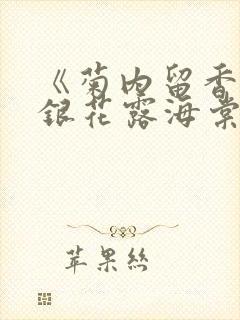 《菊内留香
銀花露海棠
苹果絲